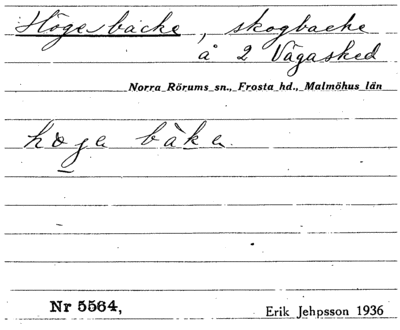 Högesbacke, skogbacke
å 2 Vägasked
Norra Rörums sn., Frosta hd., Malmöhus län
höga bàka.
Nr 5564,
Erik Jehpsson 1936